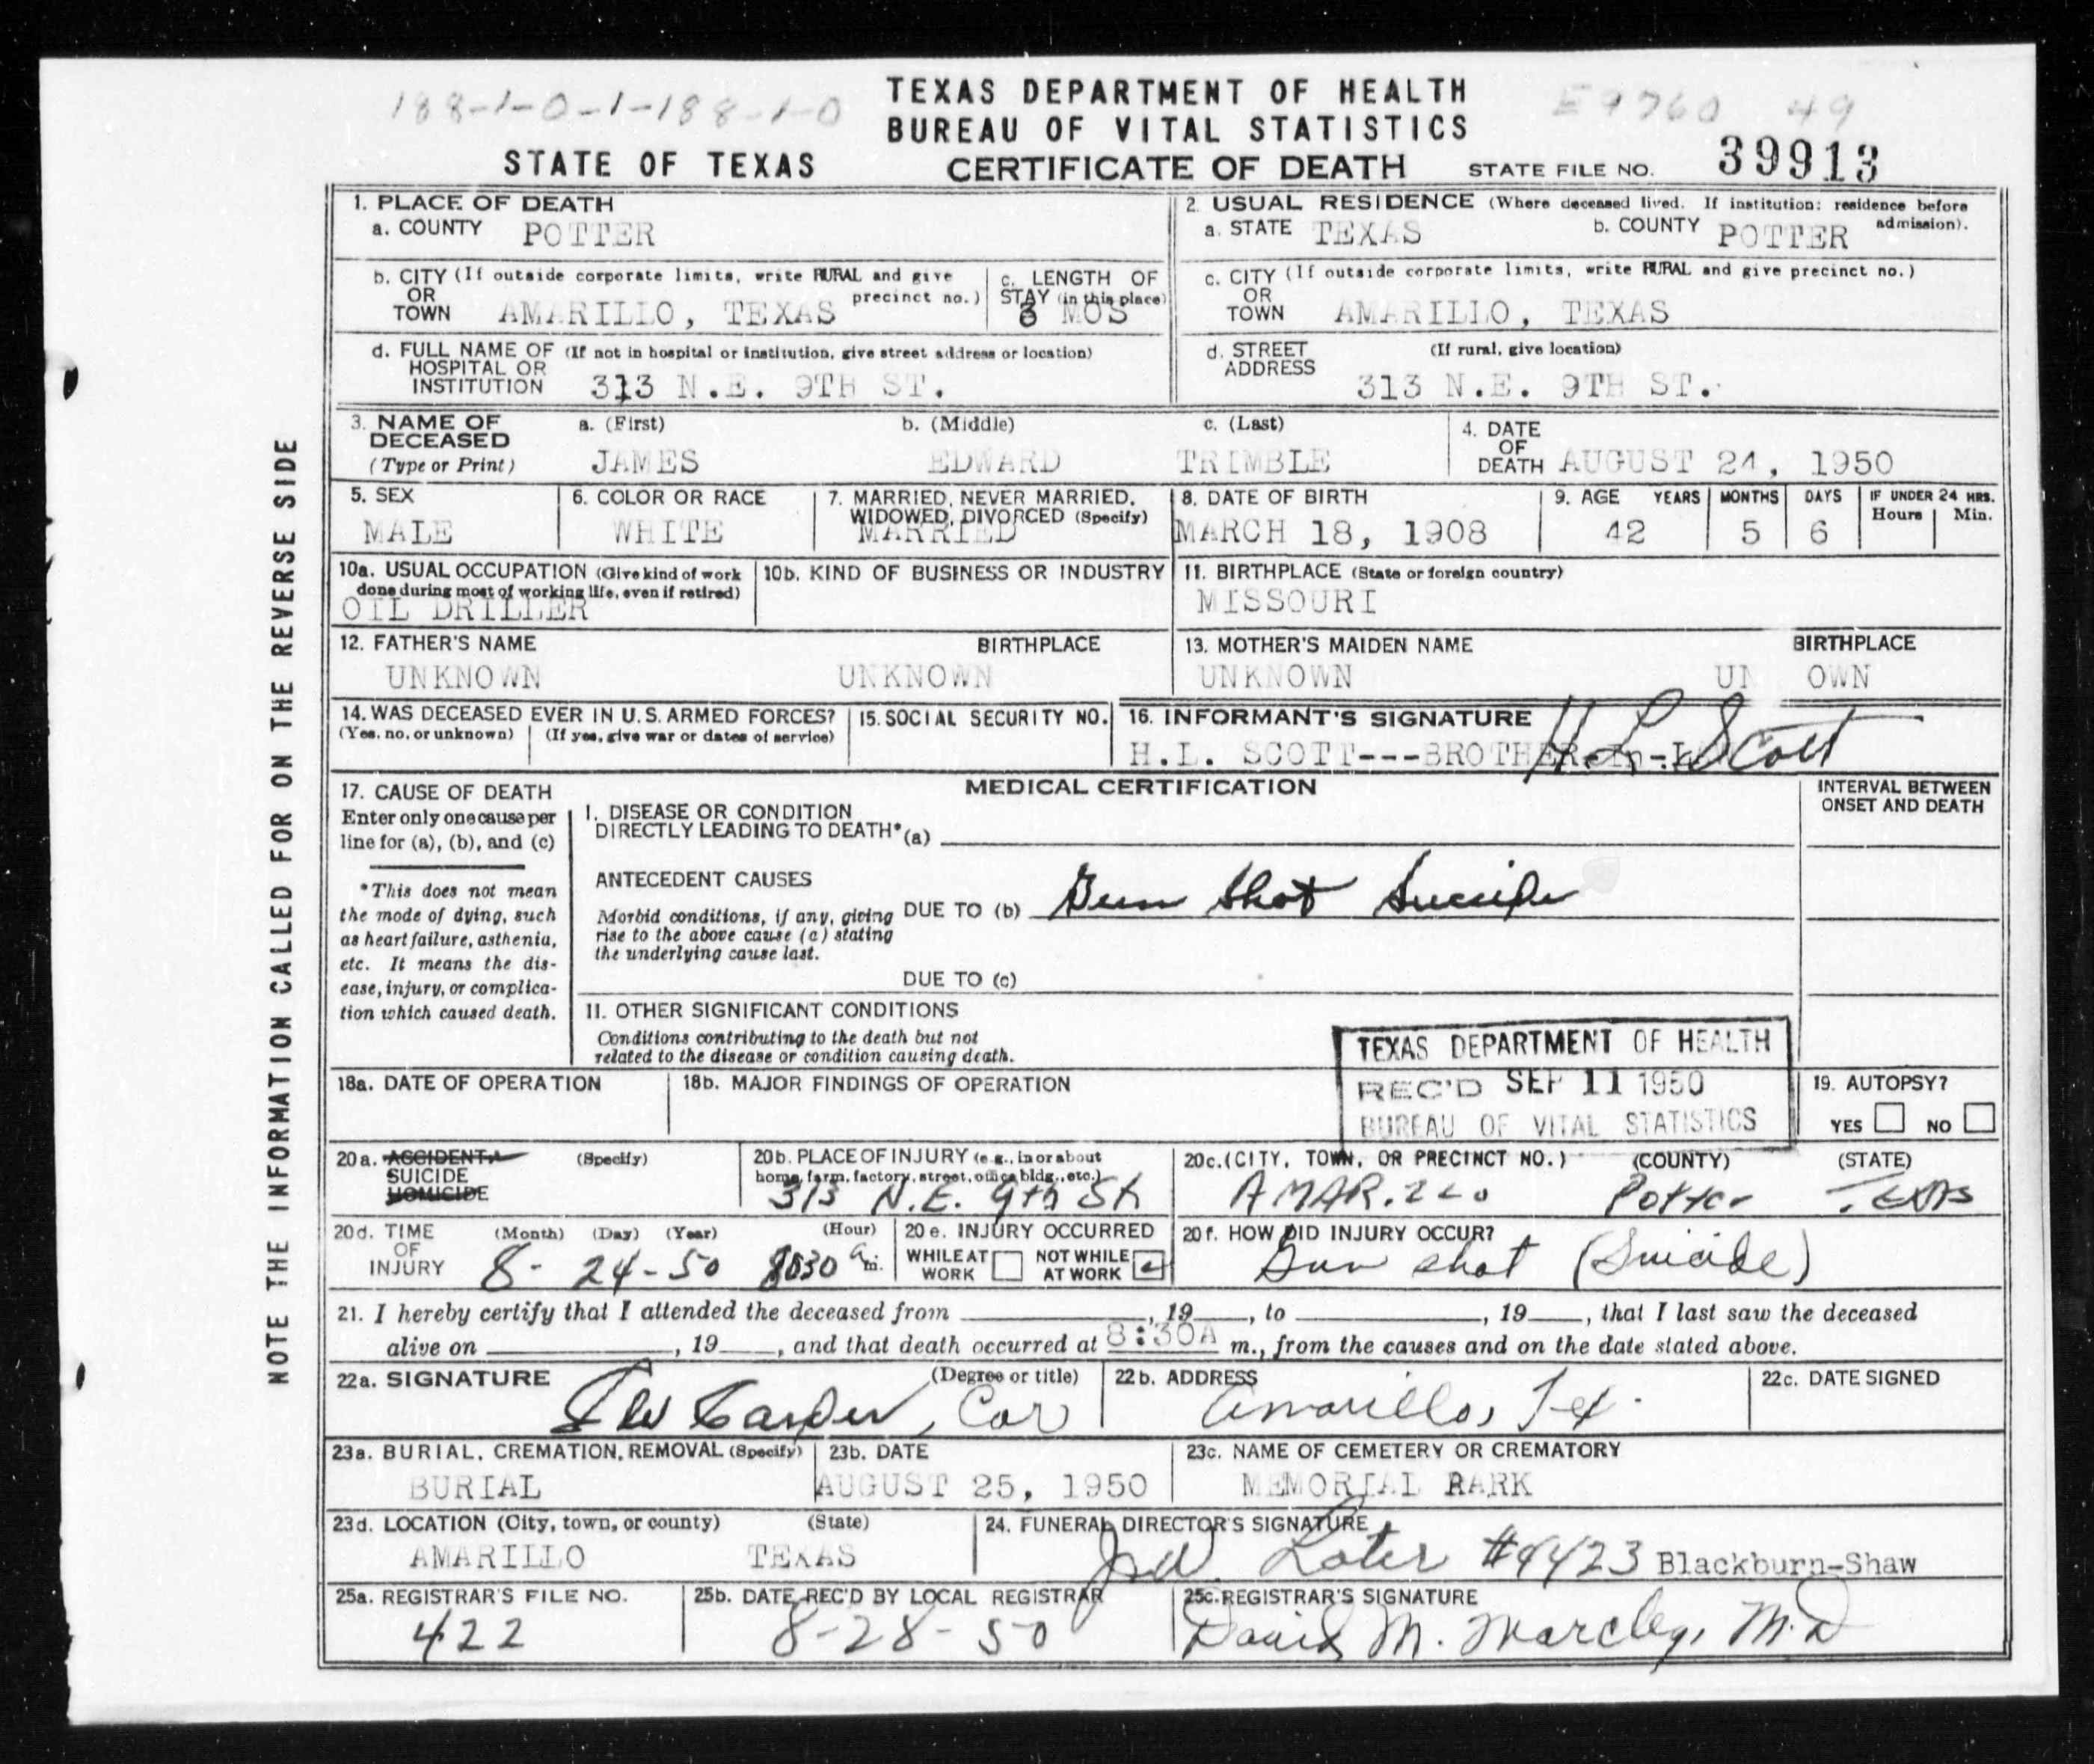 188-1-0-1-188-1-0
TEXAS DEPARTMENT OF HEALTH
BUREAU OF VITAL STATISTICS
49
STATE OF TEXAS CERTIFICATE OF DEATH STATE FILE NO. 39913
NOTE THE INFORMATION CALLED FOR ON THE REVERSE SIDE
1. PLACE OF DEATH
a. COUNTY POTTER
2. USUAL RESIDENCE (Where deceased lived. If institution: residence before admission).
a. STATE TEXAS b. COUNTY POTTER
b. CITY (If outside corporate limits, write RURAL and give precinct no.)
OR
TOWN AMARILLO, TEXAS
c. LENGTH OF
STAY (in this place)
MOS
c. CITY (If outside corporate limits, write RURAL and give precinct no.)
OR
TOWN AMARILLO, TEXAS
d. FULL NAME OF (If not in hospital or institution, give street address or location)
HOSPITAL OR
INSTITUTION 313 N.E. 9TH ST.
d. STREET (If rural, give location)
ADDRESS
313 N.E. 9TH ST.
3. NAME OF a. (First) b. (Middle) c. (Last)
DECEASED
(Type or Print) JAMES EDWARD TRIMBLE
4. DATE
OF
DEATH AUGUST 24, 1950
5. SEX
MALE
6. COLOR OR RACE
WHITE
7. MARRIED, NEVER MARRIED,
WIDOWED, DIVORCED (Specify)
MARRIED
8. DATE OF BIRTH
MARCH 18, 1908
9. AGE YEARS MONTHS DAYS IF UNDER 24 HRS.
Hours Min.
42 5 6
10a. USUAL OCCUPATION (Give kind of work
done during most of working life, even if retired)
OIL DRILLER
10b. KIND OF BUSINESS OR INDUSTRY
11. BIRTHPLACE (State or foreign country)
MISSOURI
12. FATHER'S NAME BIRTHPLACE
UNKNOWN UNKNOWN
13. MOTHER'S MAIDEN NAME BIRTHPLACE
UNKNOWN UN OWN
14. WAS DECEASED EVER IN U.S. ARMED FORCES?
(Yes, no, or unknown) (If yes, give war or dates of service)
15. SOCIAL SECURITY NO.
16. INFORMANT'S SIGNATURE H L Scott
H.L. SCOTT---BROTHER-in-L
17. CAUSE OF DEATH
Enter only one cause per
line for (a), (b), and (c)
*This does not mean
the mode of dying, such
as heart failure, asthenia,
etc. It means the dis-
ease, injury, or complica-
tion which caused death.
MEDICAL CERTIFICATION
INTERVAL BETWEEN
ONSET AND DEATH
I. DISEASE OR CONDITION
DIRECTLY LEADING TO DEATH*(a)
ANTECEDENT CAUSES
Morbid conditions, if any, giving
rise to the above cause (a) stating
the underlying cause last.
DUE TO (b) Gun Shot Suicide
DUE TO (c)
II. OTHER SIGNIFICANT CONDITIONS
Conditions contributing to the death but not
related to the disease or condition causing death.
TEXAS DEPARTMENT OF HEALTH
REC'D SEP 11 1950
BUREAU OF VITAL STATISTICS
18a. DATE OF OPERATION
18b. MAJOR FINDINGS OF OPERATION
19. AUTOPSY?
YES NO
20a. ACCIDENT (Specify)
SUICIDE
HOMICIDE
20b. PLACE OF INJURY (e.g., in or about
home, farm, factory, street, office bldg., etc.)
313 N.E. 9th St
20c. (CITY, TOWN, OR PRECINCT NO.) (COUNTY) (STATE)
Potter TEXAS
20d. TIME (Month) (Day) (Year) (Hour)
OF
INJURY 8- 24-50 830 a m.
20e. INJURY OCCURRED
WHILE AT WORK NOT WHILE AT WORK
20f. HOW DID INJURY OCCUR?
Gun shot (Suicide)
21. I hereby certify that I attended the deceased from , 19 , to , 19 , that I last saw the deceased
alive on , 19 , and that death occurred at 8:30A m., from the causes and on the date stated above.
22a. SIGNATURE (Degree or title)
Cor
22b. ADDRESS
Amarillo, Tex.
22c. DATE SIGNED
23a. BURIAL, CREMATION, REMOVAL (Specify)
BURIAL
23b. DATE
AUGUST 25, 1950
23c. NAME OF CEMETERY OR CREMATORY
MEMORIAL PARK
23d. LOCATION (City, town, or county) (State)
AMARILLO TEXAS
24. FUNERAL DIRECTOR'S SIGNATURE
#4423 Blackburn-Shaw
25a. REGISTRAR'S FILE NO.
422
25b. DATE REC'D BY LOCAL REGISTRAR
8-28-50
25c. REGISTRAR'S SIGNATURE
David M. M.D